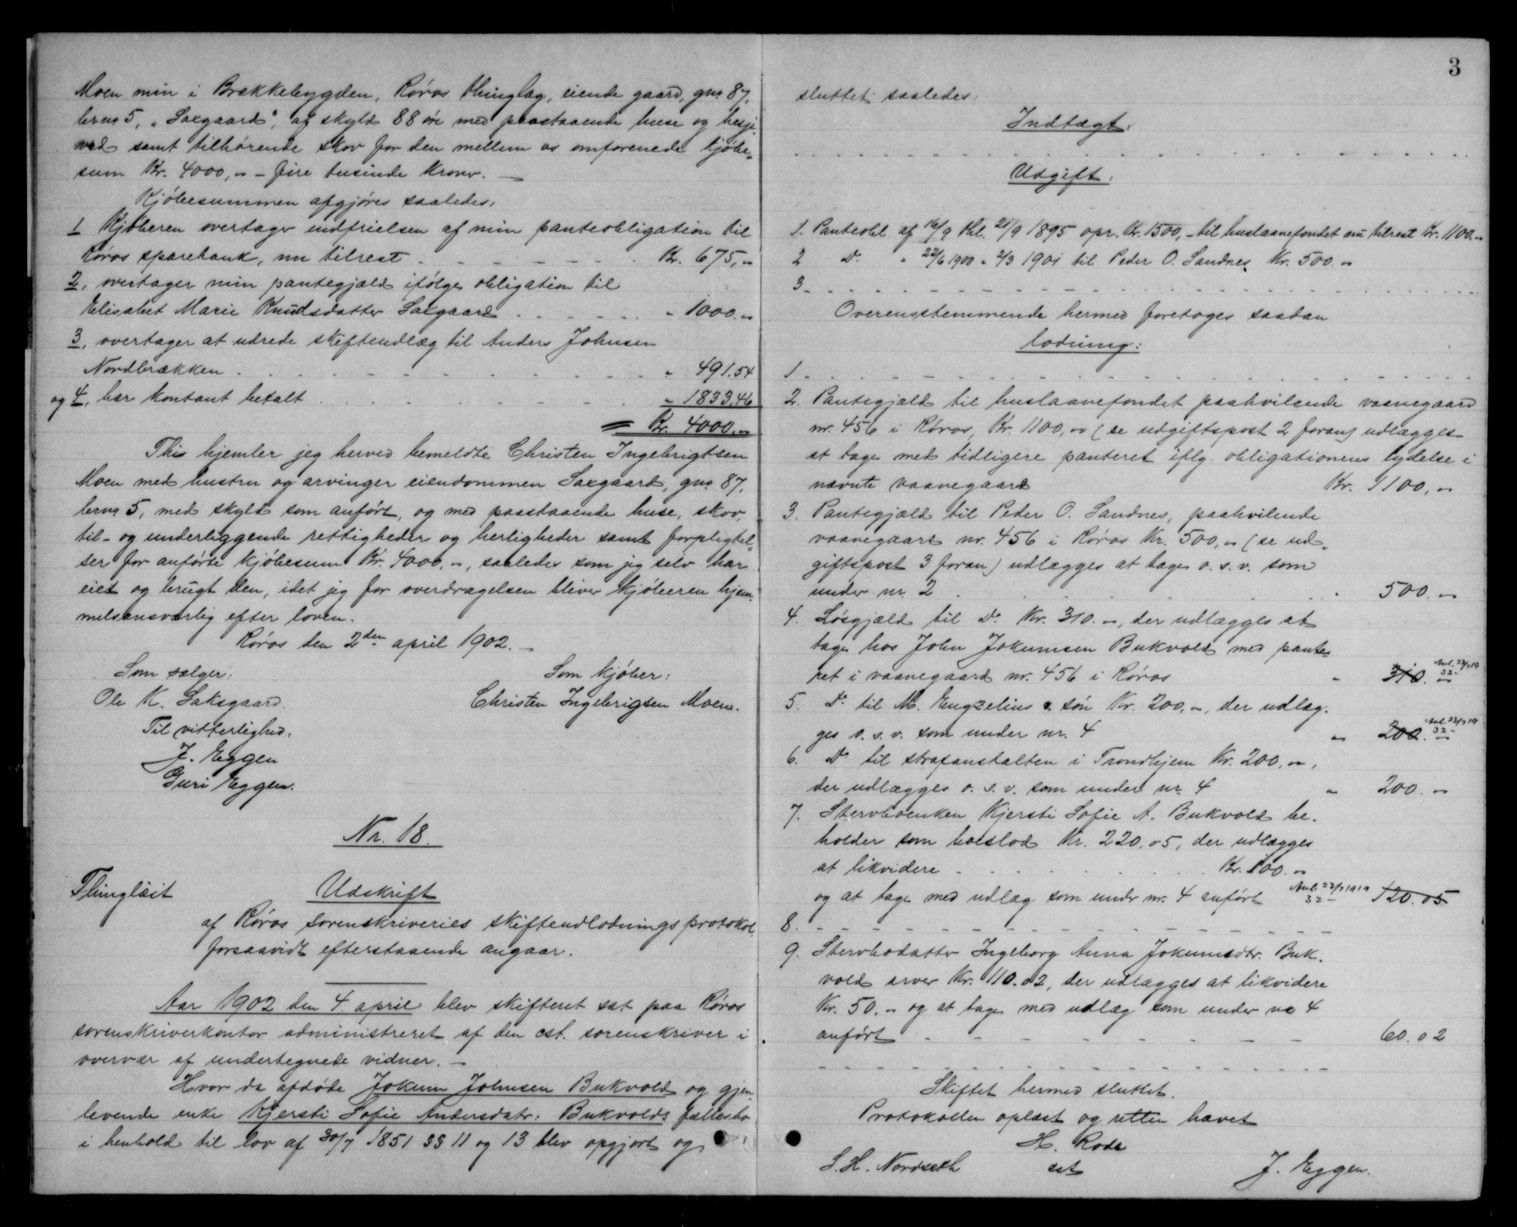 Moen min i Brækkebygden, Røros thinglag, eiende gaard, gnr 87,
brnr 5, "Saxgaard", af skyld 88 øre med paastaaende huse og besj.
ved samt tilhørende skov for den mellem os omforenede kjøbe-
sum Kr. 4000,00 – fire tusinde Kroner. —
Kjøbesummen afgjøres saaledes:
1 Kjøberen overtager indfrielsen af min panteobligation til
Røros sparebank, nu tilrest . . . . . . Kr. 675,00
2, overtager min pantegjæld ifølge obligation til
Elisabet Marie Knudsdatter Saxgaard . . . . . " 1000.00
3, overtager at udrede skifteudlæg til Anders Johnsen
Nordbrækken . . . . . . . . . " 491.54
og 4, har kontant betalt . . . . . . . . " 1833,46
= Kr. 4000.00
Thi hjemler jeg herved bemeldte Christen Ingebrigtsen
Moen med hustru og arvinger eiendommen Saxgaard, gnr 87,
brnr 5, med skyld som anført, og med paastaaende huse, skov,
til- og underliggende rettigheder og herligheder samt forpligtel-
ser for anførte kjøbesum Kr. 4000,00, saaledes som jeg selv har
eiet og brugt den, idet jeg for overdragelsen bliver kjøberen hjem-
melsansvarlig efter loven.
Røros den 2den april 1902. —
Som sælger: Som kjøber:
Ole K. Saksgaard. Christen Ingebrigsen Moen.
Til vitterlighed:
J. Eggen
Guri Eggen.
Nr. 18.
Thinglæst Udskrift
af Røros sorenskriveries skifteudlodningsprotokol,
forsaavidt efterstaaende angaar.
Aar 1902 den 4 april blev skifteret sat paa Røros
sorenskriverkontor administreret af den cst. sorenskriver i
overvær af undertegnede vidner. —
Hvor da afdøde Jokum Johnsen Bukvold og gjen-
levende enke Kjersti Sofie Andersdatr. Bukvolds fællesbo
i henhold til lov af 30/7 1851 §§ 11 og 13 blev opgjort og
3
sluttet saaledes:
Indtægt:
Udgift:
1. Panteobl. af 16/9 thl. 21/9 1895 opr. Kr. 1500,– til huslaanefondet nu tilrest Kr. 1100.00
2 Do " 22/6 1900 " 2/3 1901 til Peder O. Sandnes Kr. 500.00
3 . . . . . . . . . .
Overensstemmende hermed foretoges saadan
lodning:
1 . . . . . . . . . .
2. Pantegjæld til huslaanefondet paahvilende vaanegaard
nr. 456 i Røros, Kr. 1100,00 (se udgiftspost 2 foran) udlægges
at tage med tidligere panteret iflg. obligationens lydelse i
nævnte vaanegaard Kr. 1100,00
3. Pantegjæld til Peder O. Sandnes, paahvilende
vaanegaard nr. 456 i Røros Kr. 500,00 (se ud-
giftspost 3 foran) udlægges at tage o. s. v. som
under nr. 2 . . . . . . . " 500.00
4. Løsgjæld til Do Kr. 310.00, der udlægges at
tage hos John Jokumsen Bukvold med pante-
ret i vaanegaard nr. 456 i Røros " 310.00
5. Do til M. Engzelius & søn Kr. 200,00, der udlæg-
ges o. s. v. som under nr. 4 " 200.00
6. Do til strafanstalten i Trondhjem Kr. 200,00,
der udlægges o. s. v. som under nr. 4 " 200.00
7. Stervboenken Kjersti Sofie A. Bukvold be-
holder som boeslod Kr. 220,05, der udlægges
at likvidere . . . . . . . Kr. 100.00
og at tage med udlæg som under nr. 4 anført 120.05
8 . . . . . . . . . .
9. Stervbodatter Ingeborg Anna Jokumsdtr. Buk-
vold arver Kr. 110.02, der udlægges at likvidere
Kr. 50.00 og at tage med udlæg som under nr 4
anført – – – – – – – – 60.02
Skiftet hermed sluttet.
Protokollen oplæst og retten hævet
H. Rode
S. H. Nordseth cst J. Eggen.